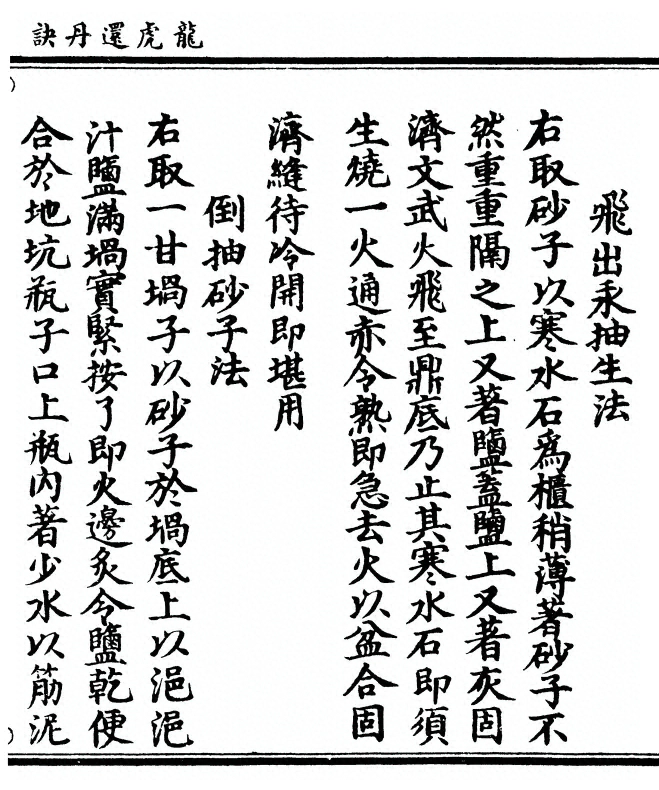 龍虎還丹訣
飛出永抽生法
右取砂子以寒水石爲櫃稍薄著砂子不
然重重隔之上又著鹽蓋鹽上又著灰固
濟文武火飛至鼎底乃止其寒水石即須
生燒一火通赤令熟即急去火以盆合固
濟縫待冷開即堪用
倒抽砂子法
右取一甘堝子以砂子於堝底上以浥浥
汁鹽滿堝實緊按了即火邊炙令鹽乾便
合於地坑瓶子口上瓶內著少水以筋泥